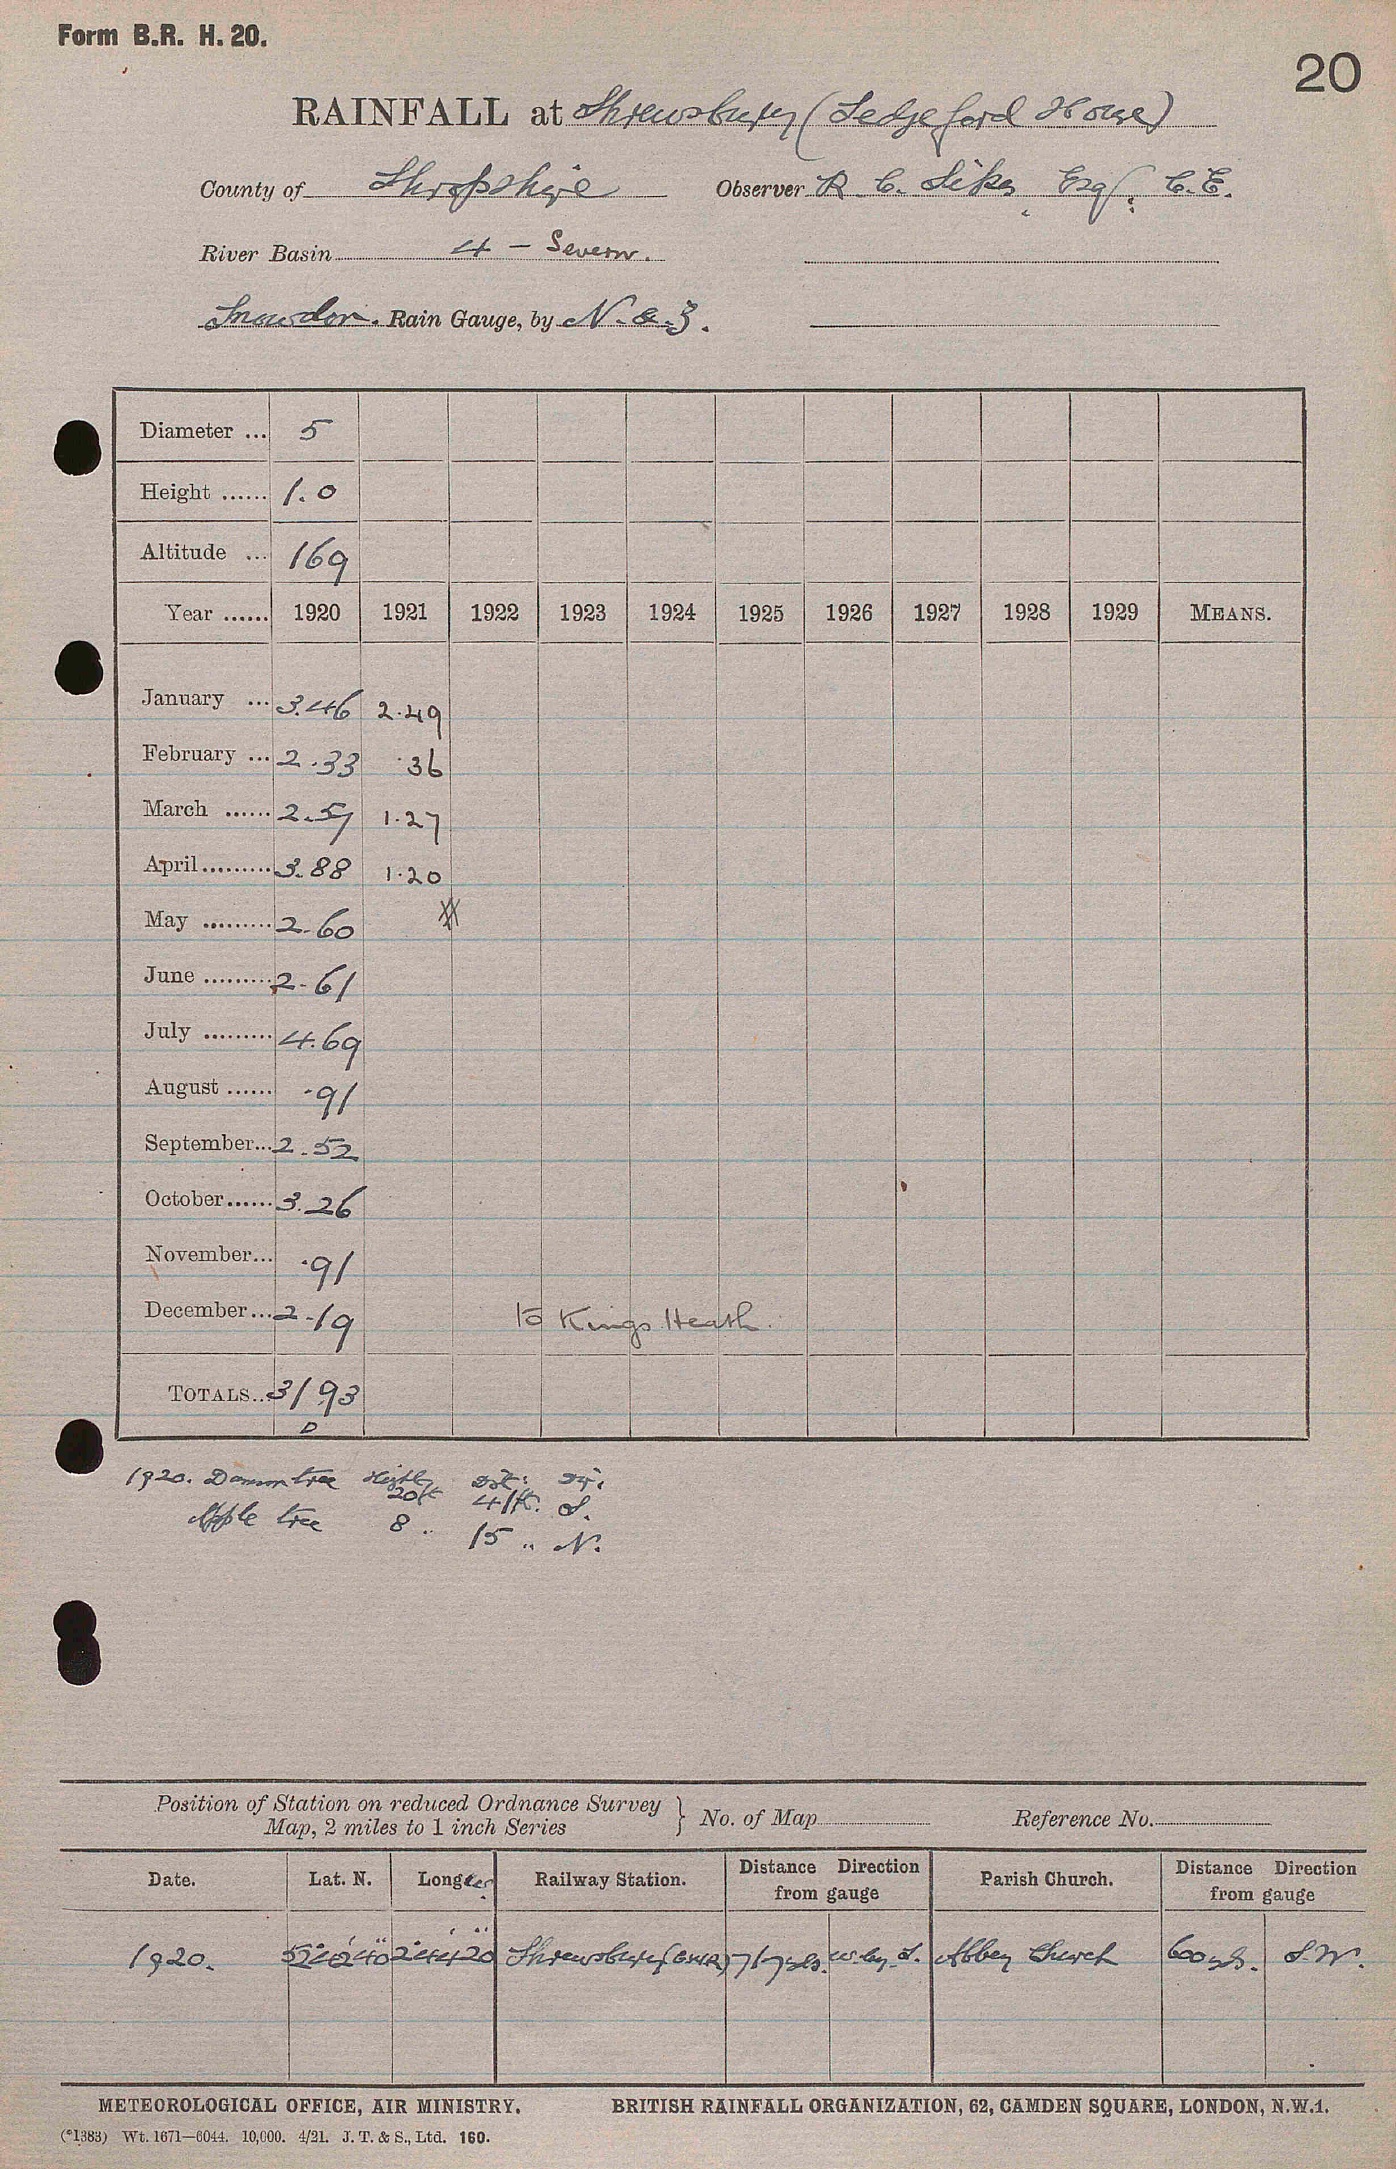 Form B.R. H. 20.
20
RAINFALL at Shrewsbury (Sedgeford House)
County of Shropshire Observer R. C. Sikes Esq., C.E.
River Basin 4 - Severn.
Snowdon. Rain Gauge, by N. & Z.
Diameter ... 5
Height ...... 1.0
Altitude ... 169
Year ...... 1920 1921 1922 1923 1924 1925 1926 1927 1928 1929 MEANS.
January ... 3.46 2.49
February ... 2.33 .36
March ...... 2.57 1.27
April ......... 3.88 1.20
May ......... 2.60
June ......... 2.61
July ......... 4.69
August ...... .91
September... 2.52
October...... 3.26
November... .91
December... 2.19 To Kings Heath.
TOTALS.. 31.93
D
1920. Damson tree Height 20ft Dist: 41ft. Dir: S.
Apple tree 8 " 15 " N.
Position of Station on reduced Ordnance Survey Map, 2 miles to 1 inch Series } No. of Map Reference No.
Date. Lat. N. Long W. Railway Station. Distance Direction from gauge Parish Church. Distance Direction from gauge
1920. 52° 42' 40" 2° 44' 20" Shrewsbury (GWR) 717 yds. W. by S. Abbey Church 600 yds. S.W.
METEOROLOGICAL OFFICE, AIR MINISTRY. BRITISH RAINFALL ORGANIZATION, 62, CAMDEN SQUARE, LONDON, N.W.1.
(*1383) Wt. 1671—6044. 10,000. 4/21. J. T. & S., Ltd. 160.